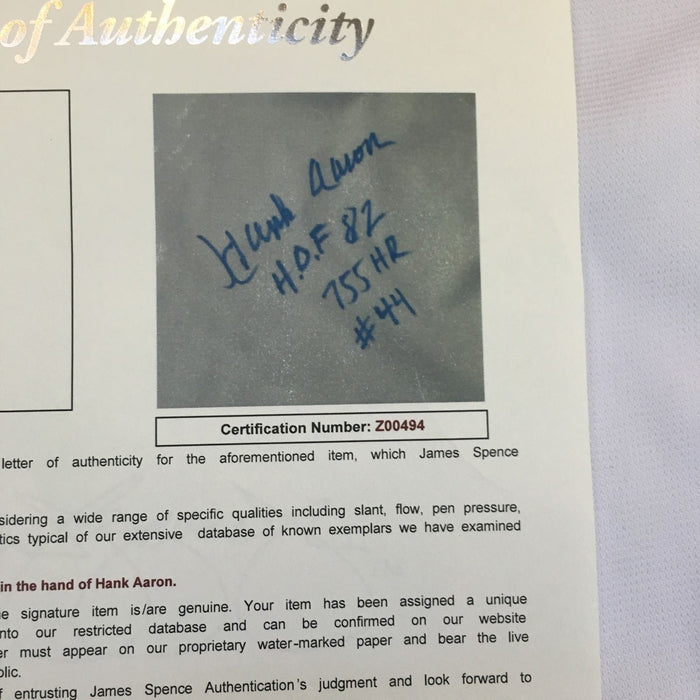 of Authenticity
Hank Aaron
H.O.F 82
755 HR
#44
Certification Number: Z00494
letter of authenticity for the aforementioned item, which James Spence
sidering a wide range of specific qualities including slant, flow, pen pressure,
tics typical of our extensive database of known exemplars we have examined
in the hand of Hank Aaron.
e signature item is/are genuine. Your item has been assigned a unique
nto our restricted database and can be confirmed on our website
er must appear on our proprietary water-marked paper and bear the live
olic.
f entrusting James Spence Authentication's judgment and look forward to